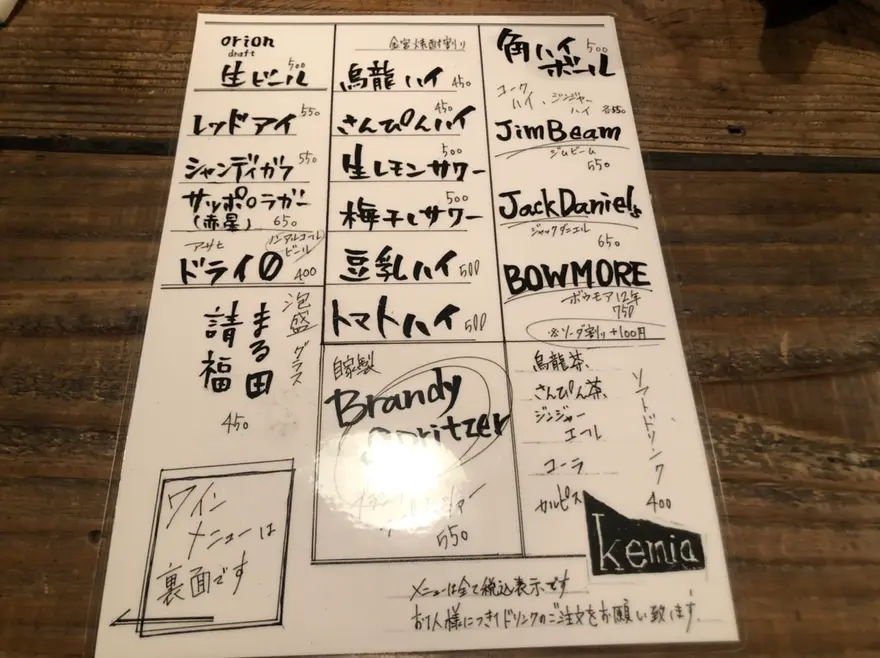 orion
draft
生ビール 500
レッドアイ 550
シャンディガフ 550
サッポロラガー
(赤星) 650
アサヒ
ノンアルコール
ビール
ドライ0 400
泡盛 グラス
まる田
請福
450
ワイン
メニューは
裏面です
金宮焼酎割り
烏龍ハイ 450
さんぴんハイ 450
生レモンサワー 500
梅干しサワー 500
豆乳ハイ 500
トマトハイ 500
自家製
Brandy
Spritzer
550
角ハイ
ボール 500
コーク
ハイ、ジンジャー
ハイ 各550
JimBeam
ジムビーム
550
JackDaniel's
ジャックダニエル
650
BOWMORE
ボウモア12年
750
※ソーダ割り+100円
ソフトドリンク
400
烏龍茶、
さんぴん茶、
ジンジャー
エール
コーラ
カルピス
kemia
メニューは全て税込表示です
お1人様につき1ドリンクのご注文をお願い致します.